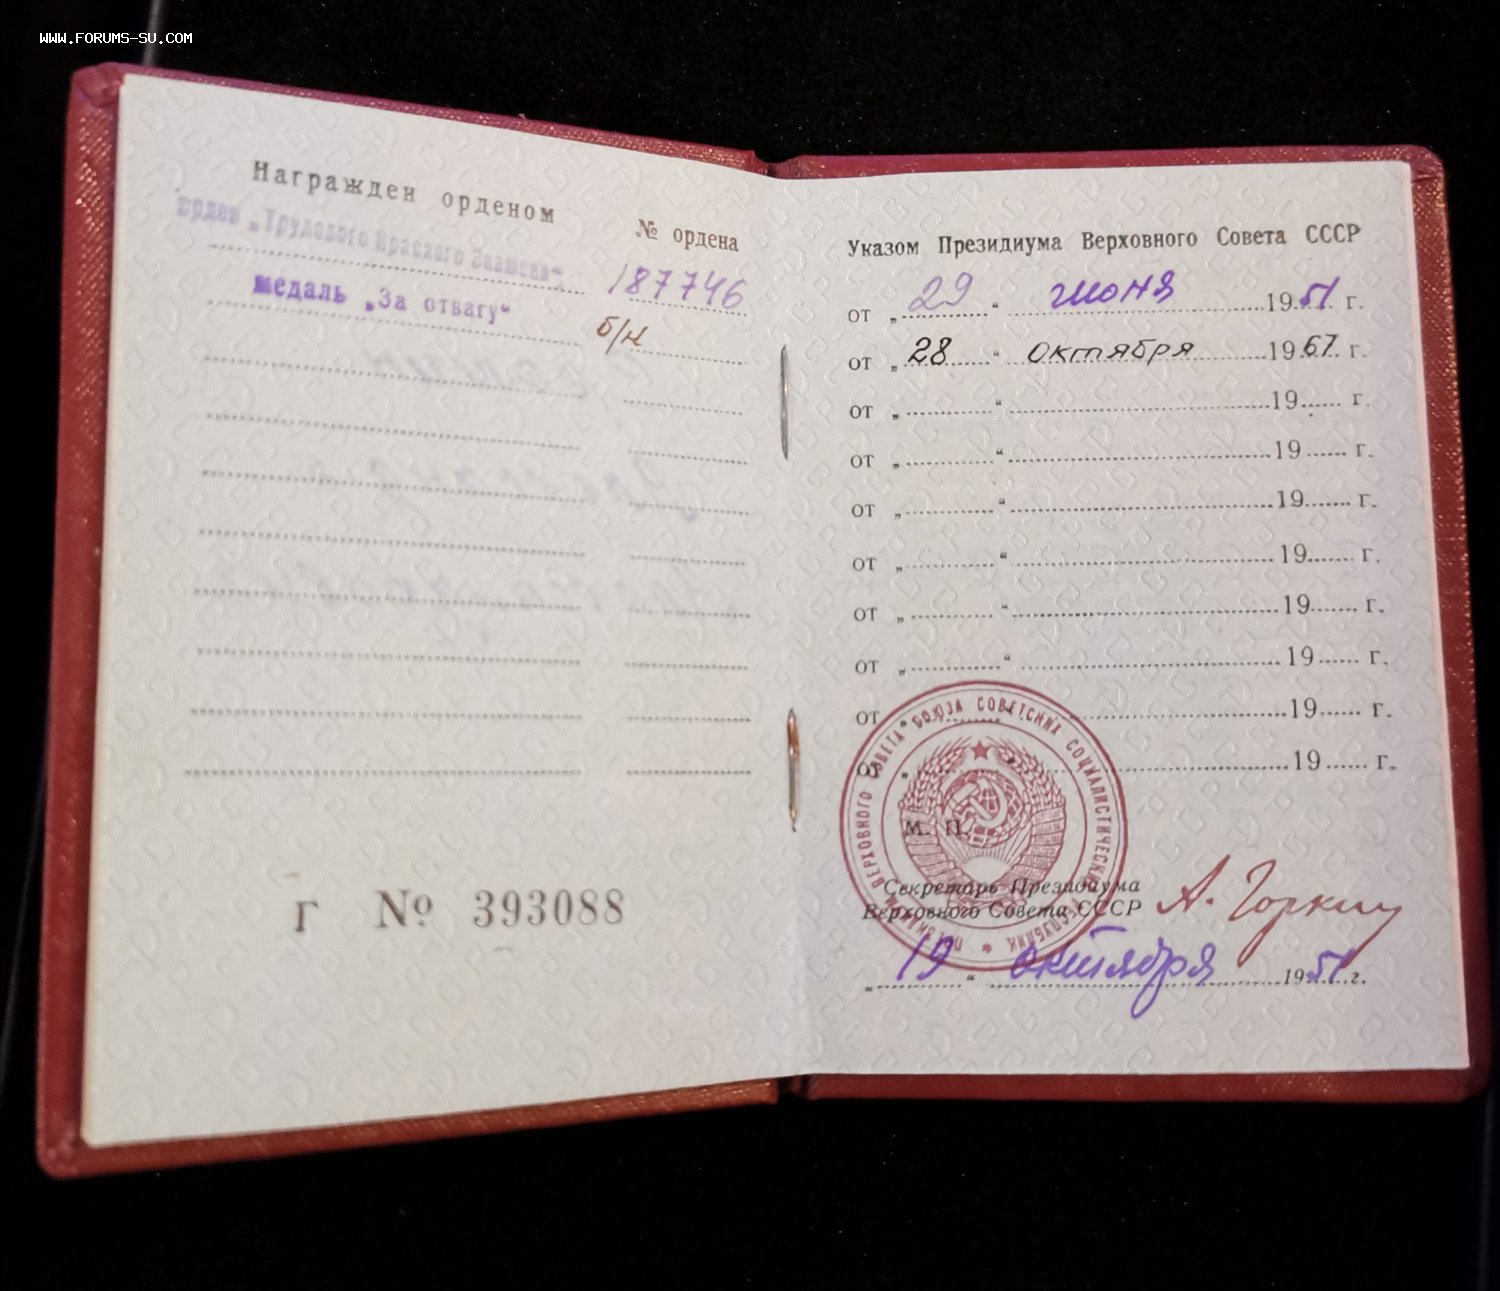 WWW.FORUMS-SU.COM
Награжден орденом
№ ордена
орден „Трудового Красного Знамени“
187746
медаль „За отвагу“
б/н
Г № 393088
Указом Президиума Верховного Совета СССР
от „29“ июня 1951 г.
от „28“ октября 1967 г.
от „ “ 19 г.
от „ “ 19 г.
от „ “ 19 г.
от „ “ 19 г.
от „ “ 19 г.
от „ “ 19 г.
от „ “ 19 г.
от „ “ 19 г.
ПРЕЗИДИУМ ВЕРХОВНОГО СОВЕТА СОЮЗА СОВЕТСКИХ СОЦИАЛИСТИЧЕСКИХ РЕСПУБЛИК
М. П.
Секретарь Президиума
Верховного Совета СССР
А. Горкин
„19“ октября 1951 г.